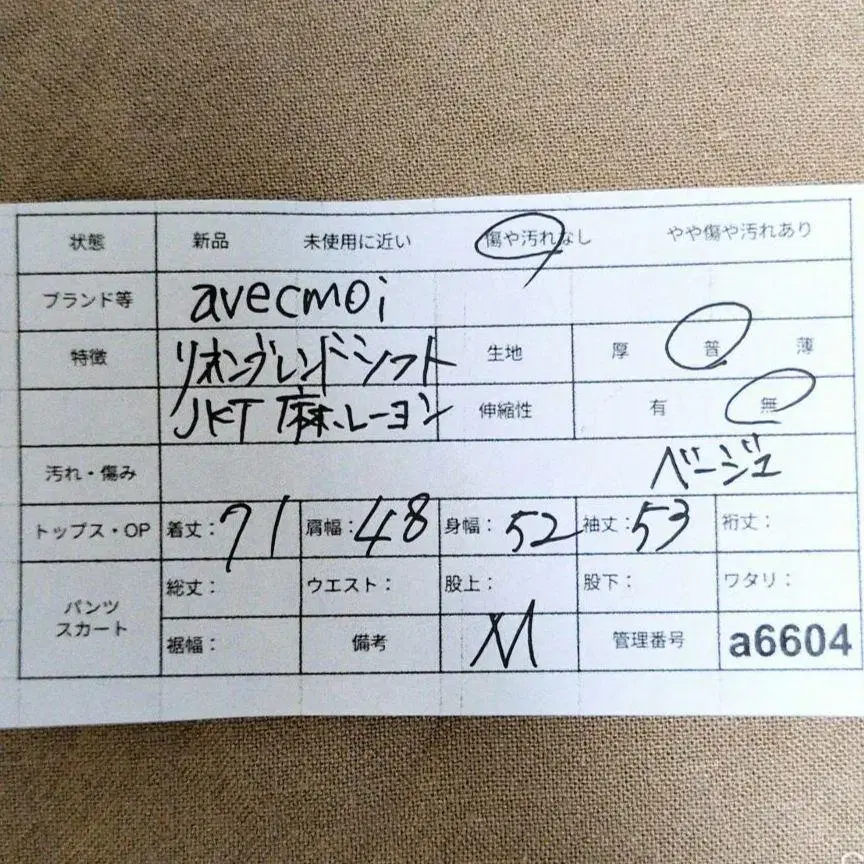 状態 新品 未使用に近い 傷や汚れなし やや傷や汚れあり
ブランド等 avecmoi
特徴 リオンブレンドシフト 生地 厚 普 薄
JKT 麻.レーヨン 伸縮性 有 無
汚れ・傷み ベージュ
トップス・OP 着丈:71 肩幅:48 身幅:52 袖丈:53 裄丈:
パンツ スカート 総丈: ウエスト: 股上: 股下: ワタリ:
裾幅: 備考 M 管理番号 a6604